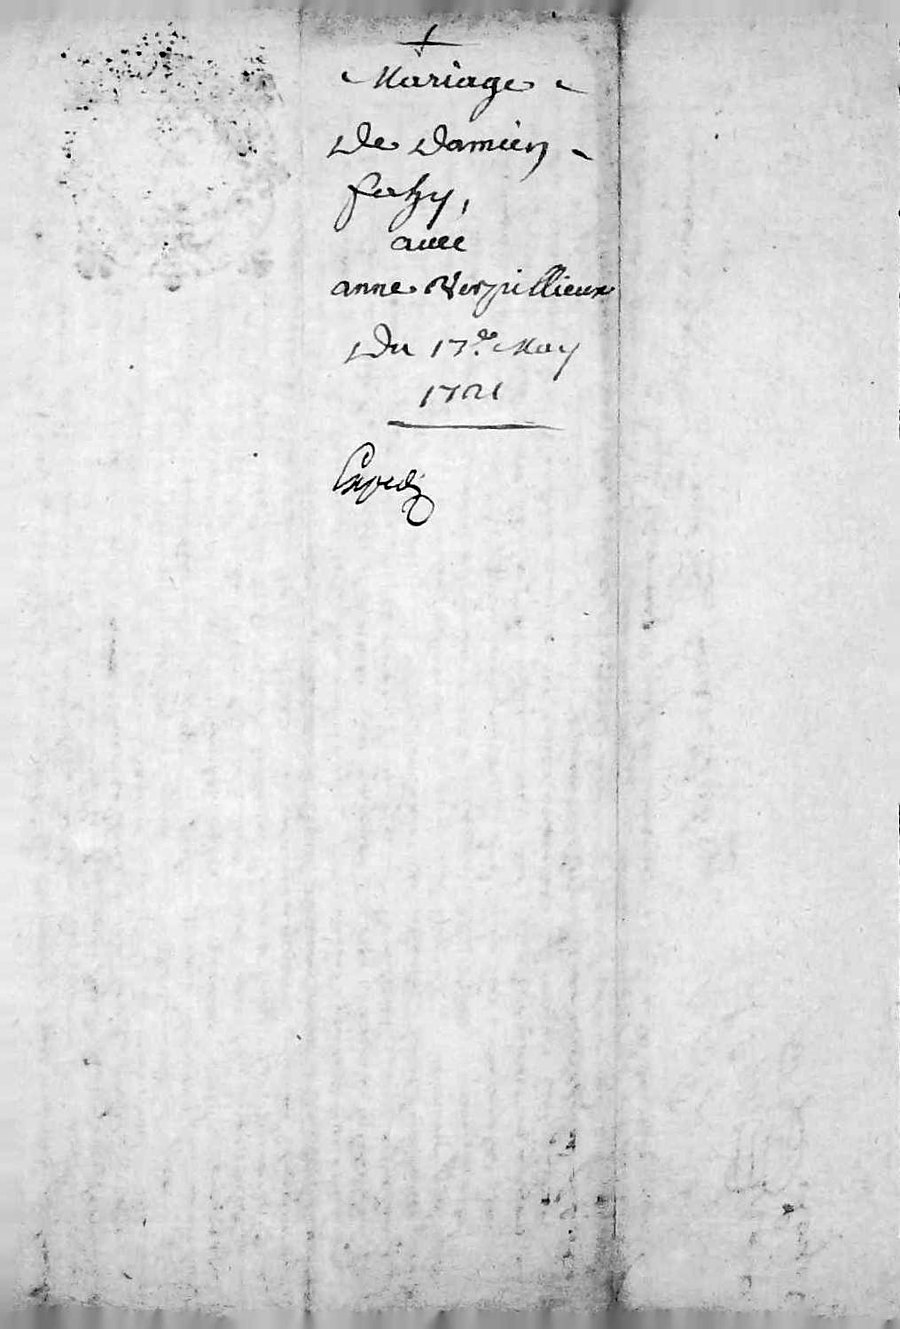 Mariage
De Damien
fahy,
avec
anne Verpillieux
Du 17.e May
1721
Exped